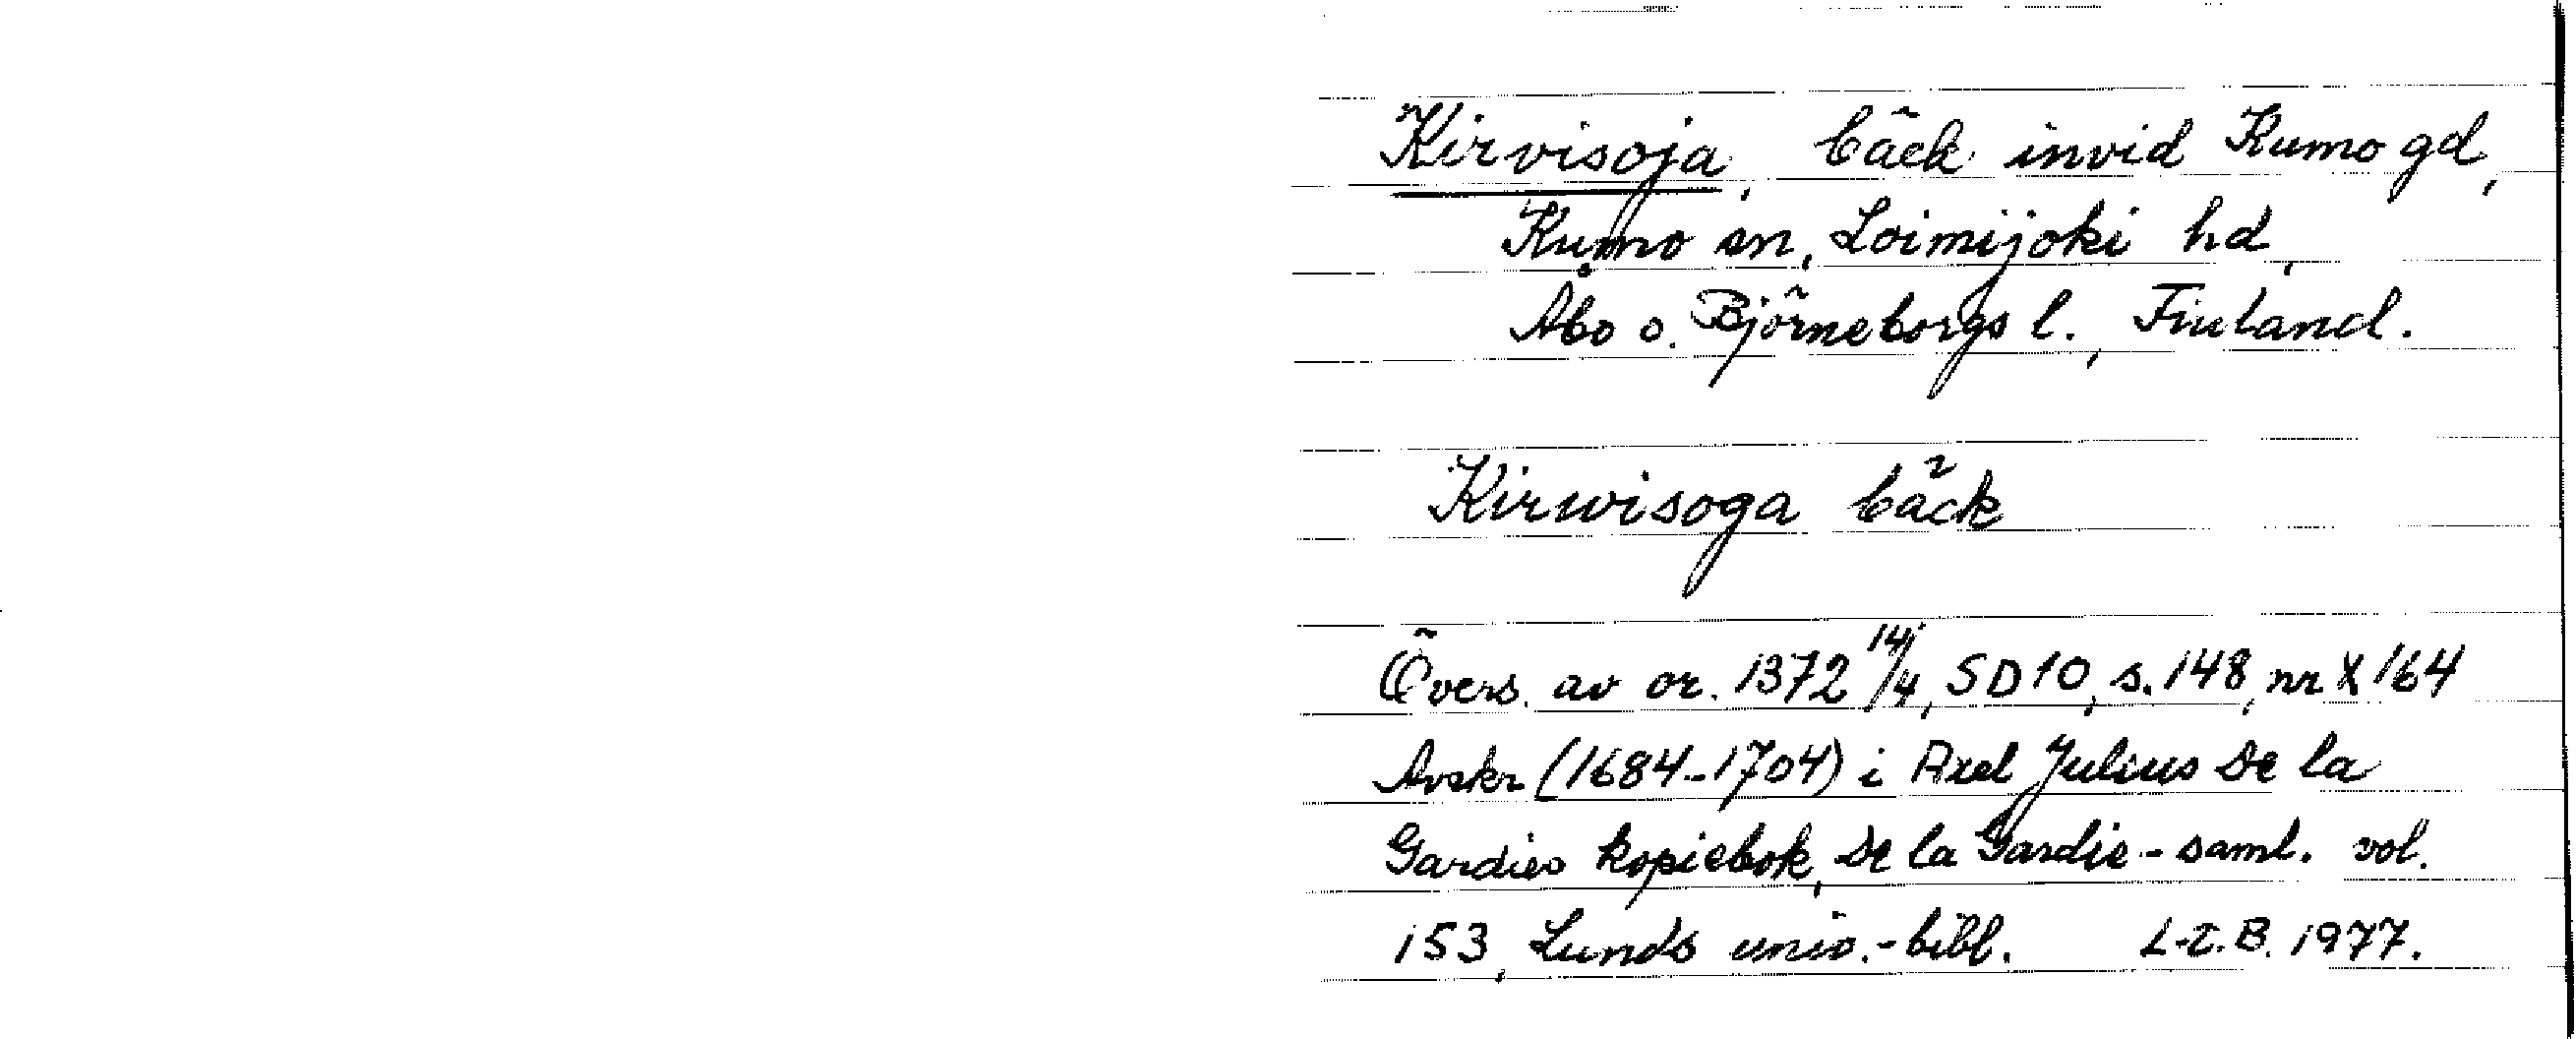 Kirvisoja, bäck invid Kumo gd,
Kumo sn, Loimijoki hd,
Åbo o. Björneborgs l., Finland.
Kirwisoga bäck
Övers. av or. 1372 14/4, SD 10, s. 148, nr X 164
Avskr (1684-1704) i Axel Julius De la
Gardies kopiebok, De la Gardie-saml. vol.
153, Lunds univ.-bibl. L-E.B. 1977.